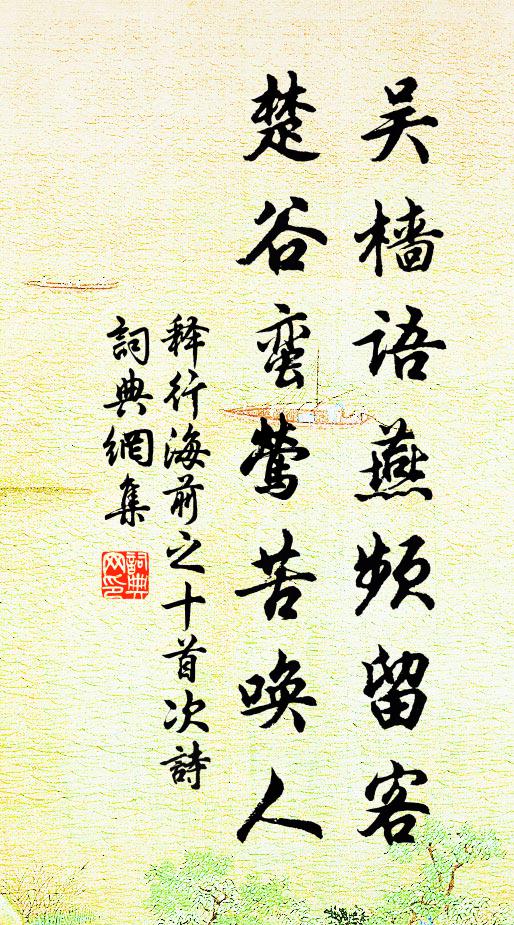 吴樯语燕频留客
楚谷蛮莺苦唤人
释行海前之十首次詩
詞典網集
詞典
网印